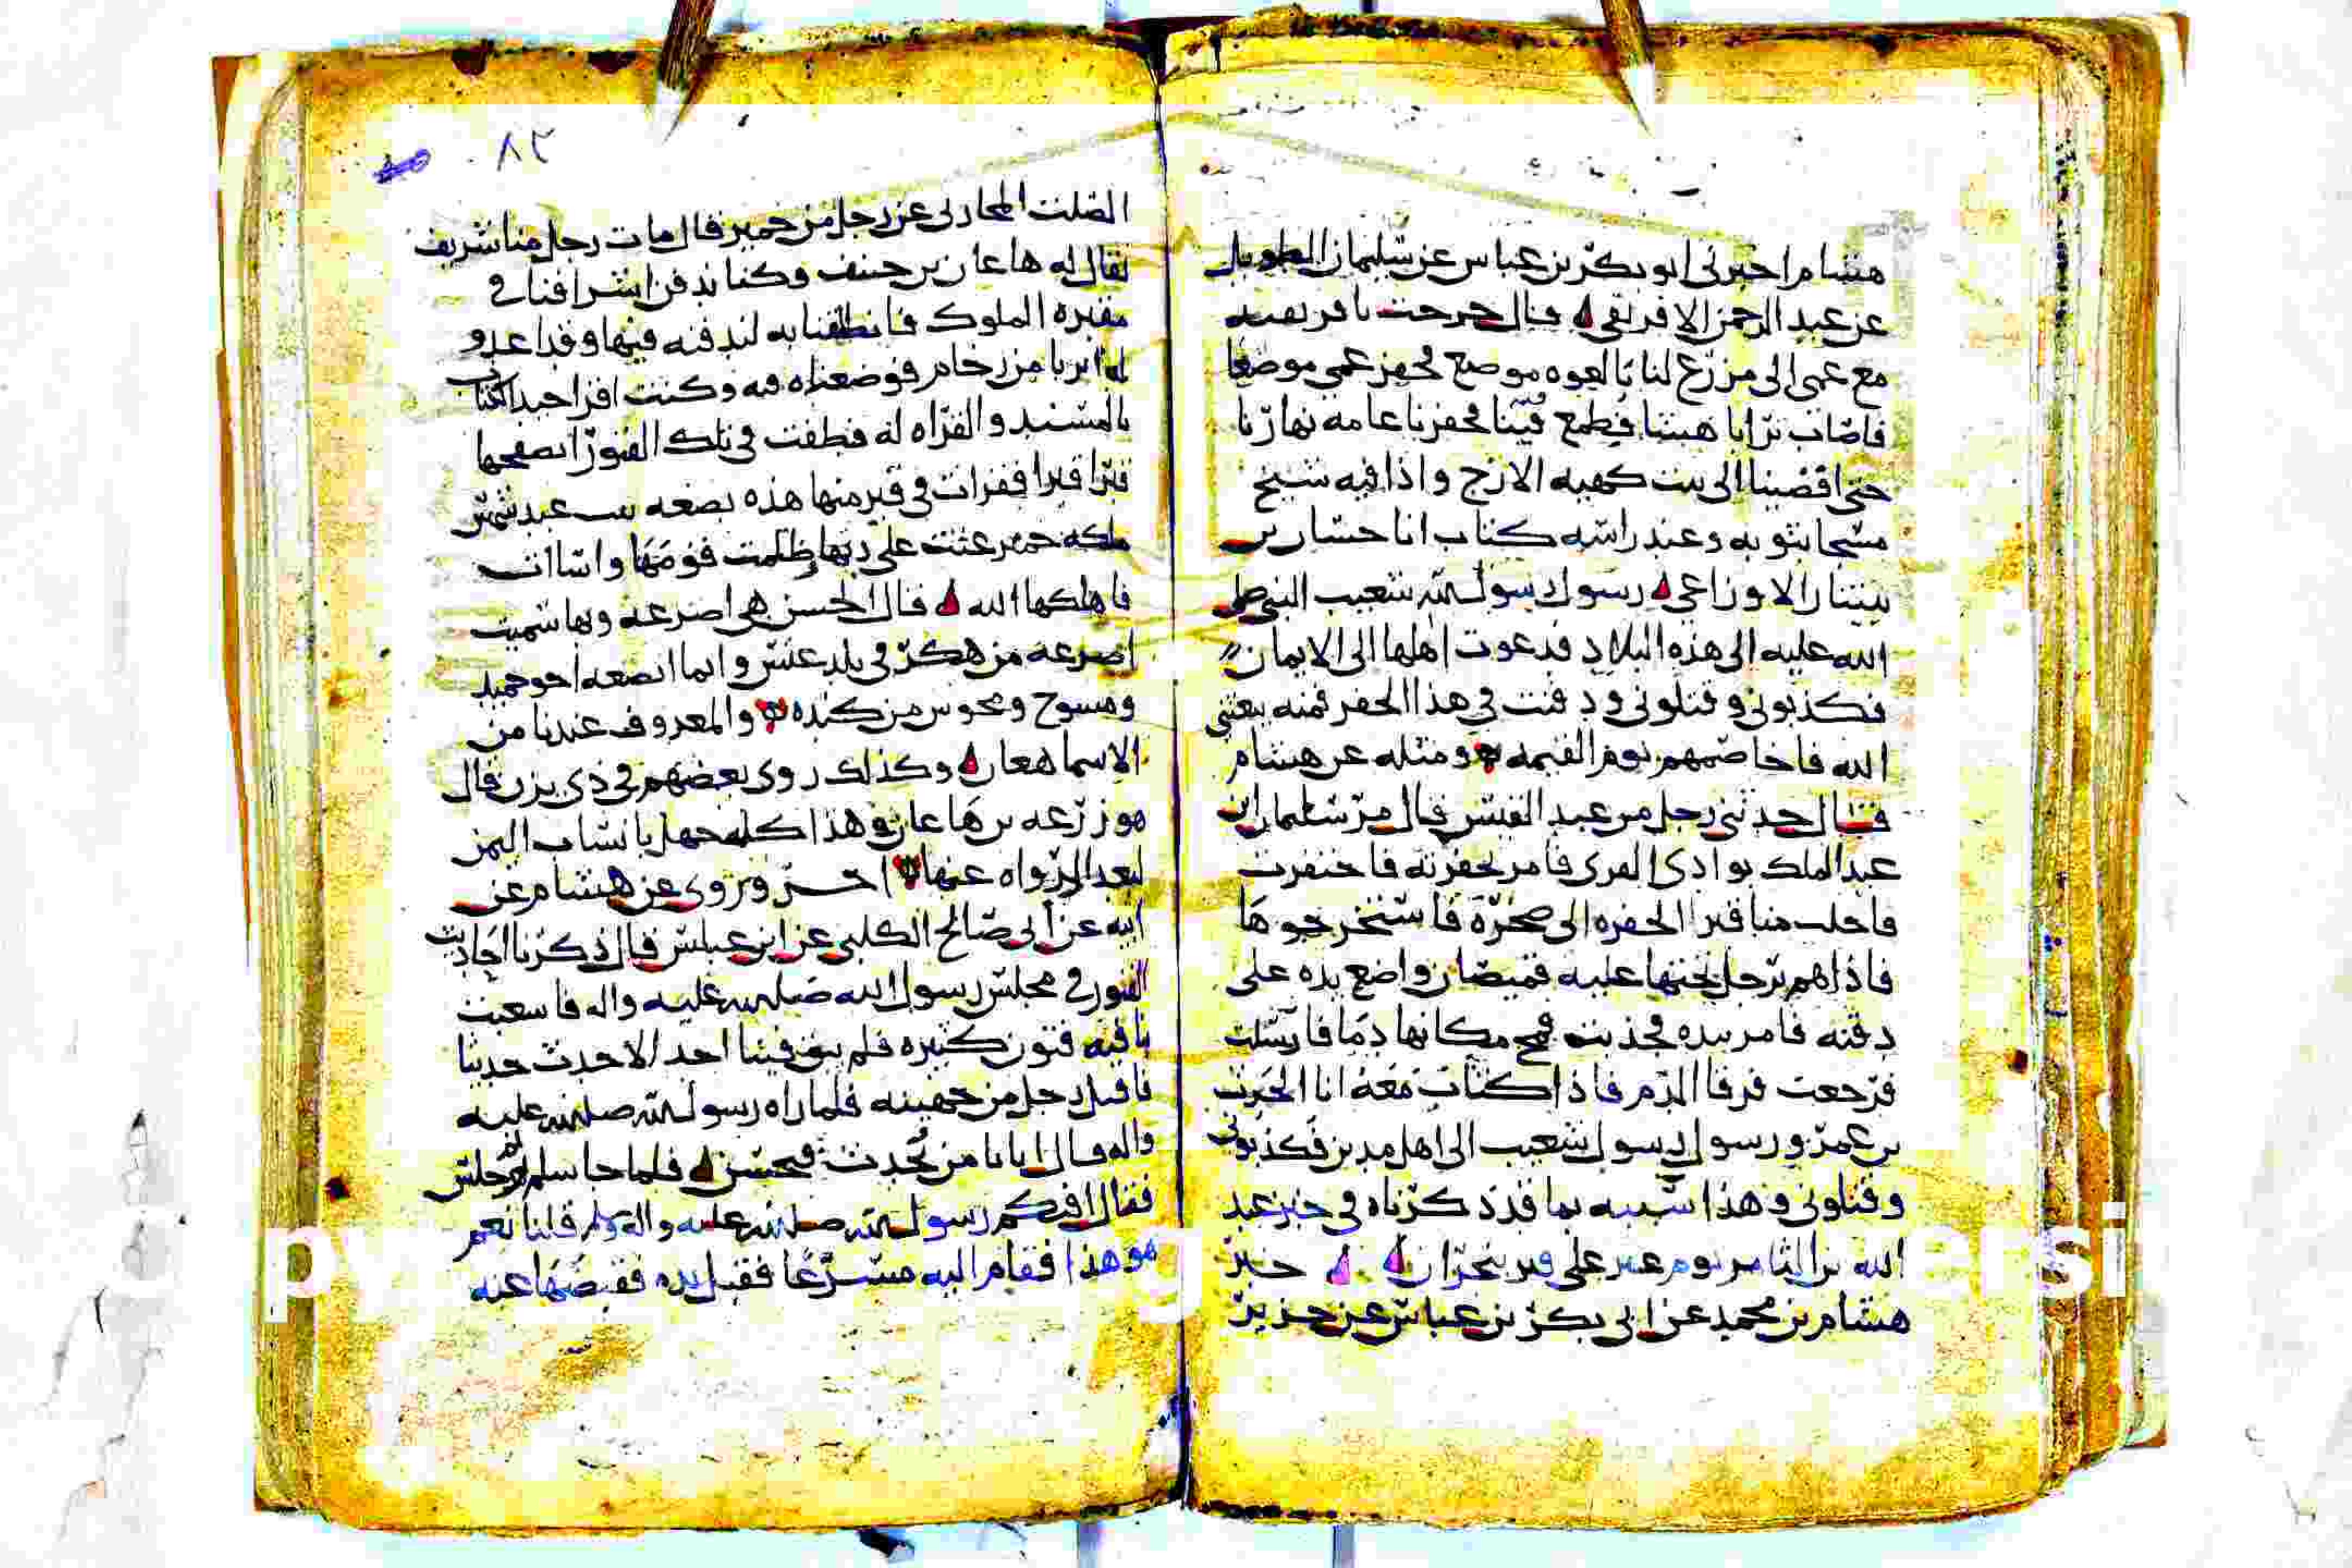 هشام اخبرني ابو بكر بن عباس عن سليمان الطويل
عن عبد الرحمن الافريقي قال خرجت بافريقيه
مع عمي الى مزرع لنا بالعوه موضع فحفر عمي موضعا
فاصاب ترابا هينا فطمع فينا فحفرنا عامه نهارنا
حتى افضينا الى بيت كهيه الازج واذا فيه شيخ
مسجا بثوبه وعند راسه كتاب انا حسان بن
سنان الاوزاعي رسول رسول الله شعيب النبي صلى
الله عليه الى هذه البلاد فدعوت اهلها الى الايمان
فكذبوني وقتلوني ودفنت في هذا الحفر فمنه يبعثني
الله فاخاصمهم يوم القيمه ومثله عن هشام
قال حدثني رجل من عبد القيس قال مر سليمان بن
عبد الملك بوادي القرى فامر بحفرته فاحتفرت
الحفره الى صخرة فاستخرجوها
فاذا هم برجل تحتها عليه قميصان واضع يده على
ذقنه فامر بيده فجذبت فمج مكانها دما فارسلت
فرجعت فرقا الدم فاذا كتاب معه انا الحرث
بن عمرو رسول رسول شعيب الى اهل مدين فكذبوني
وقتلوني وهذا شبيه بما قد ذكرناه في خبر عبد
الله بن الثامر يوم عبر على قبر بنجران خبر
هشام بن محمد عن ابي بكر بن عباس عن
٨٢
الصلت المحاربي عن رجل من حمير قال مات رجل منا شريف
يقال له هاعان بن حنيف وكنا ندفن اشرافنا في
مقبره الملوك فانطلقنا به لندفنه فيها وقد اعدو
له ابربا من رخام فوضعناه فيه وكنت اقرا حيد الكتاب
بالمسند والقراه له فطفت في تلك القبور اتصفحها
قبرا قبرا فقرات في قبر منها هذه بضعه بنت عبد شمس
ملكه حمير عتت على ربها وظلمت قومها واساات
فاهلكها الله قال الحسن هي اصرعه وبها سميت
اصرعه من هكر في بلد عنس وانما ابضعه اخو حميد
ومسوح ومخوس من كنده والمعروف عندنا من
الاسما هعان وكذلك روى بعضهم في ذي يزن قال
هو زرعه بن هاعان وهذا كله جهل بانساب اليمن
لبعد الرواه عنها اخر وروى عن هشام عن
ابيه عن ابي صالح الكلبي عن ابن عباس قال ذكرنا احاديث
القبور في مجلس رسول الله صلى الله عليه واله
كثيره فلم يبق فينا احد الا حدث حديثا
فاقبل رجل من جهينه فلما راه رسول الله صلى الله عليه
واله قال اتانا من تحدث فيحسن فلما جا سلم ثم جلس
فقال افيكم رسول الله صلى الله عليه واله وسلم قلنا نعم
هو هذا فقام اليه مسرعا فقبل يده فقبضها عنه